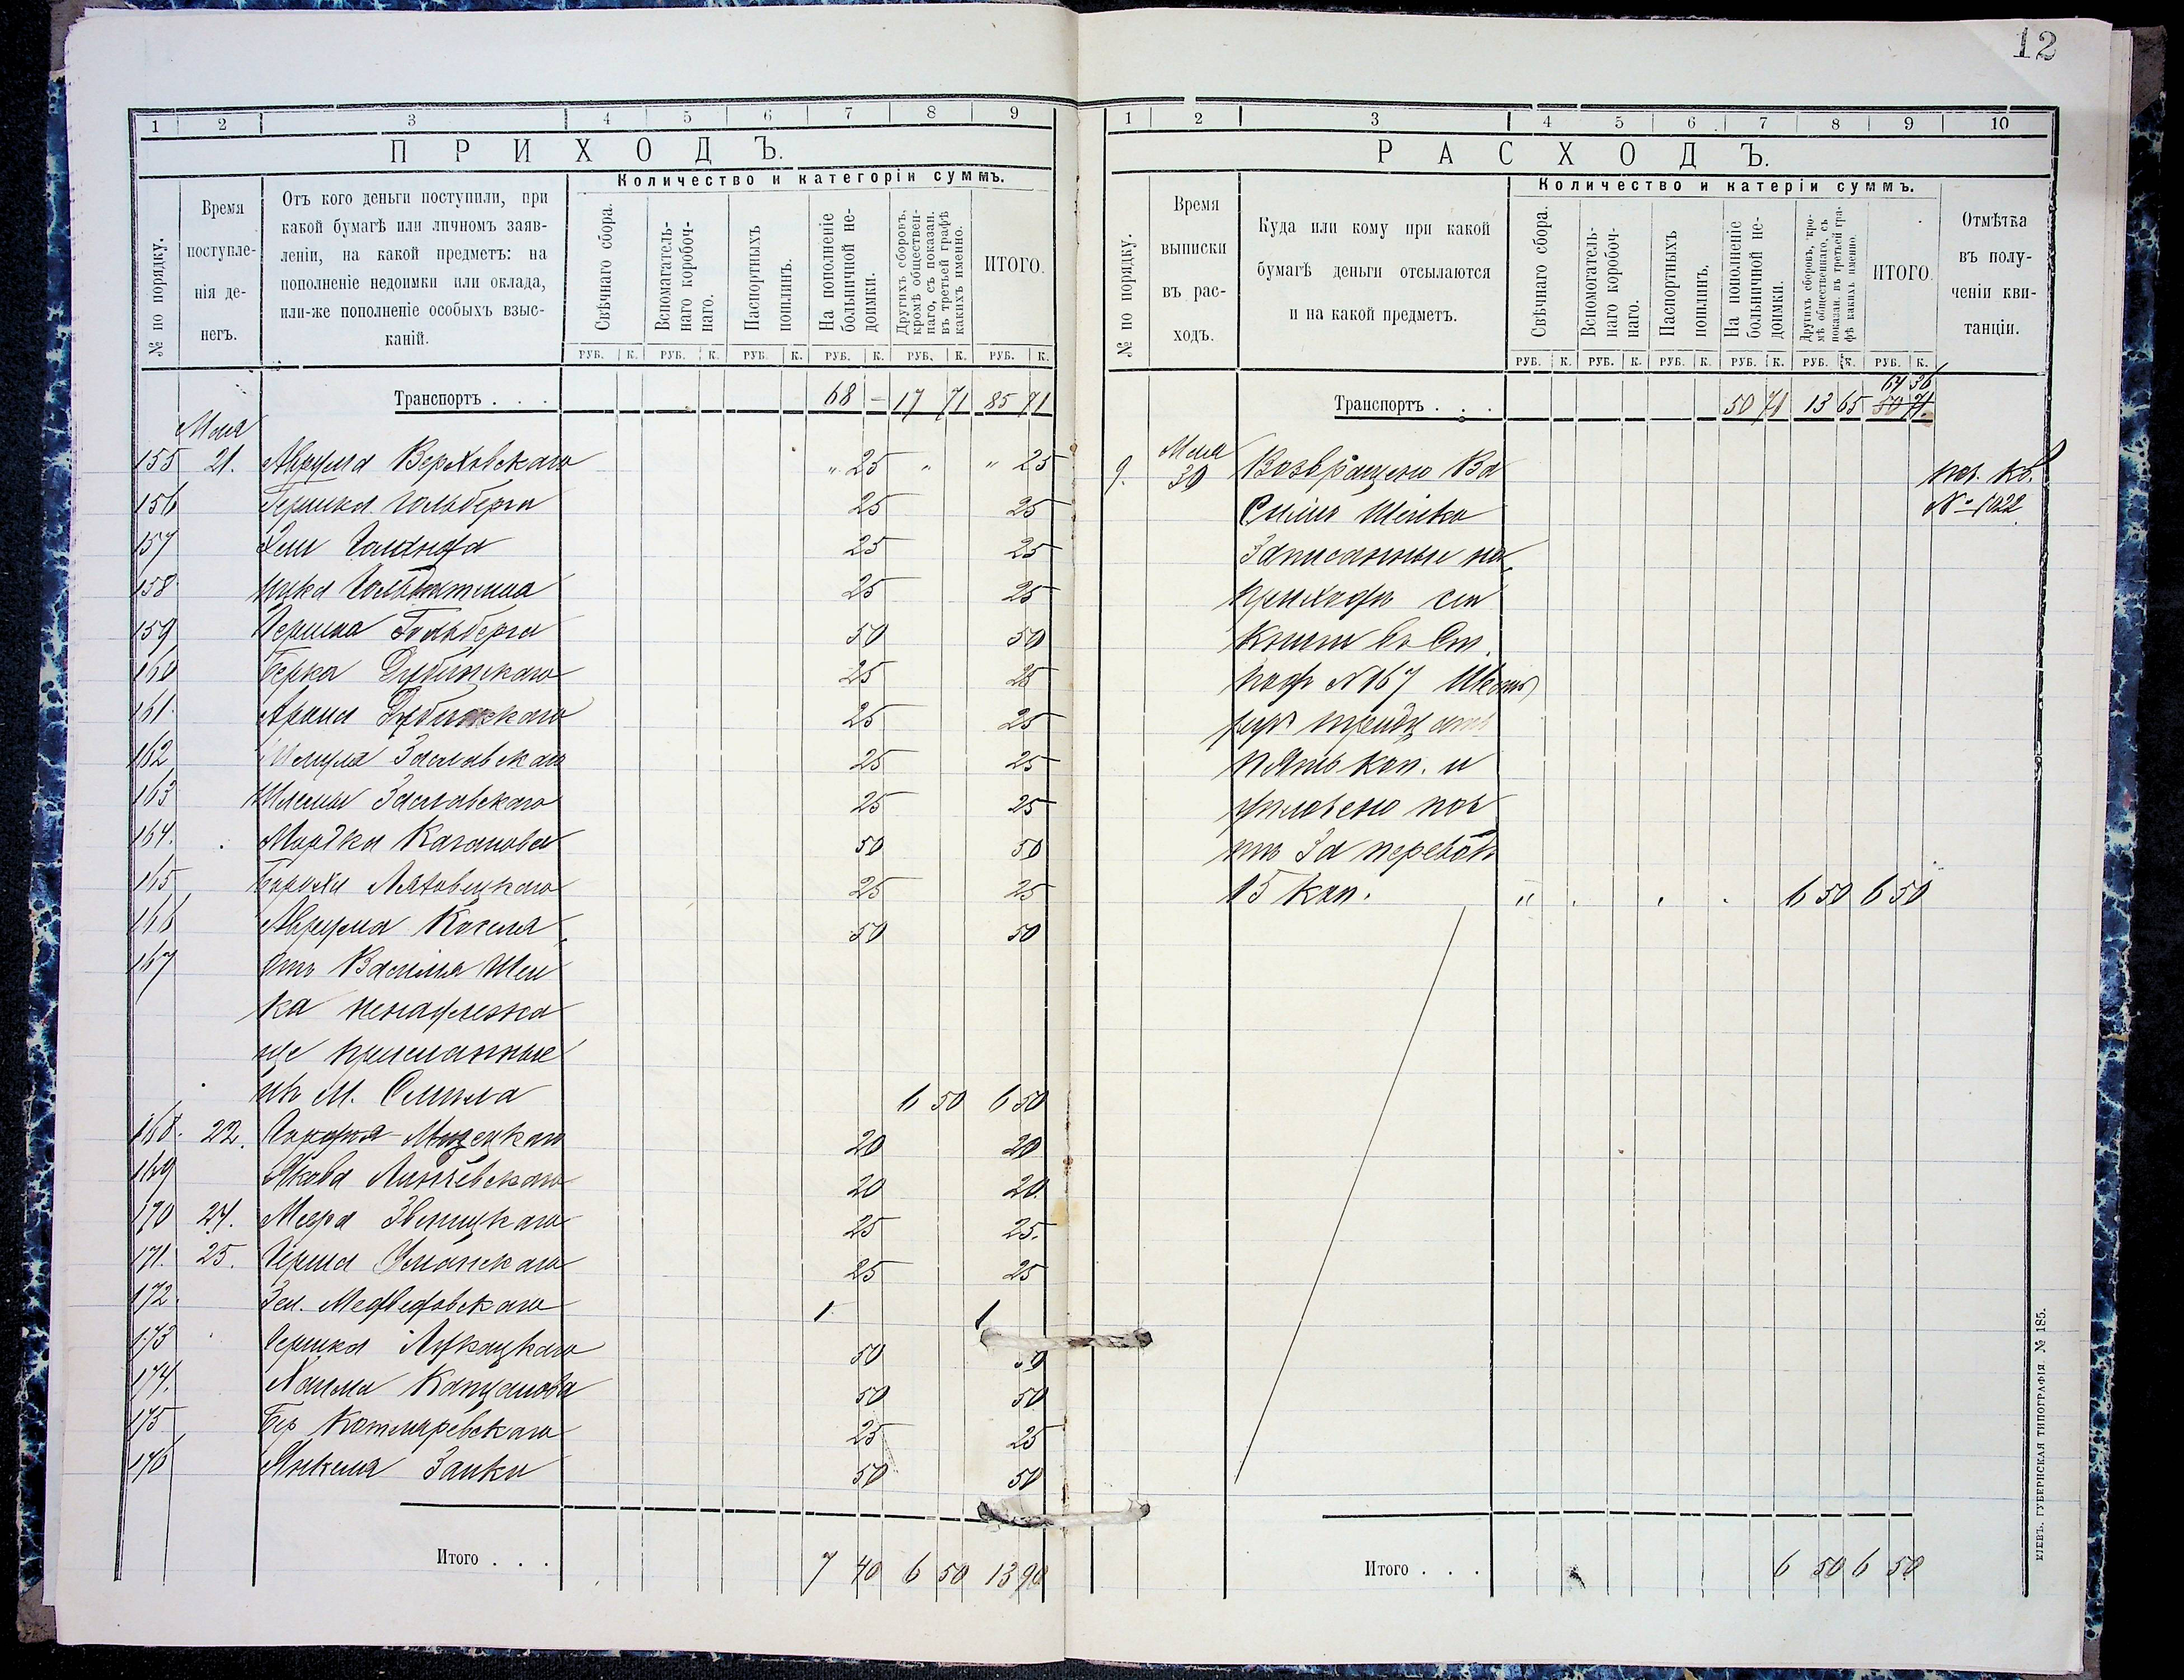 12
1 2 3 4 5 6 7 8 9
ПРИХОДЪ.
№ по порядку.
Время
поступле-
нія де-
негъ.
Отъ кого деньги поступили, при
какой бумагѣ или личномъ заяв-
леніи, на какой предметъ: на
пополненіе недоимки или оклада,
или-же пополненіе особыхъ взыс-
каній.
Количество и категоріи суммъ.
Свѣчнаго сбора.
Вспомагатель-
наго коробоч-
наго.
Паспортныхъ
пошлинъ.
На пополненіе
больничной не-
доимки.
Другихъ сборовъ,
кромѣ обществен-
наго, съ показан.
въ третьей графѣ
какихъ именно.
ИТОГО.
РУБ. К. РУБ. К. РУБ. К. РУБ. К. РУБ. К. РУБ. К.
Транспортъ . . . 68 — 17 71 85 71
Мая
155 21. Аврума Верховскаго " 25 " " 25
156 Гершка Гольберга 25 25
157 25 25
158 Ицка 25 25
159 Герша Гольберга 50 50
160 Берка Дубинскаго 25 25
161. Арона Дубинскаго 25 25
162 Заславскаго 25 25
163 Шлемы Заславскаго 25 25
164. Мордка Каганова 50 50
165 Борохи 25 25
166 Аврума Когана 50 50
167 отъ Василія Шей
ка ненадлежа
ще присланные
изъ М. Смила 6 50 6 50
168. 22. 20 20
169 Якова 20 20.
170 24. Меера Звеницкаго 25 25.
171. 25. Герша Уманскаго 25 25
172. Зел. Медведовскаго 1. 1
173 Гершка 50 50
174. Хаима Капцанова 50 50
175 Бер Котляревскаго 25 25
176 Янкеля Заики 50 50
Итого . . . 7 40 6 50 13 90
1 2 3 4 5 6 7 8 9 10
РАСХОДЪ.
№ по порядку.
Время
выписки
въ рас-
ходъ.
Куда или кому при какой
бумагѣ деньги отсылаются
и на какой предметъ.
Количество и катеріи суммъ.
Свѣчнаго сбора.
Вспомогатель-
наго коробоч-
наго.
Паспортныхъ
пошлинъ.
На пополненіе
больничной не-
доимки.
Другихъ сборовъ, кро-
мѣ общественнаго, съ
показан. въ третьей гра-
фѣ какихъ именно.
ИТОГО.
Отмѣтка
въ полу-
ченіи кви-
танціи.
РУБ. К. РУБ. К. РУБ. К. РУБ. К. РУБ. К. РУБ. К.
64 36
Транспортъ . . . 50 71 13 65 50 71
9. Мая
30 Возвращено Ва
силію Шейко
Записанные на
приходъ сей
Книги въ ст.
подъ № 167 Шесть
руб. тридцать
пять коп. и
уплочено поч
тѣ За переводъ
15 коп. " 6 50 6 50
поч. кв.
№ 1022
Итого . . . 6 50 6 50
КІЕВЪ. ГУБЕРНСКАЯ ТИПОГРАФІЯ. № 185.